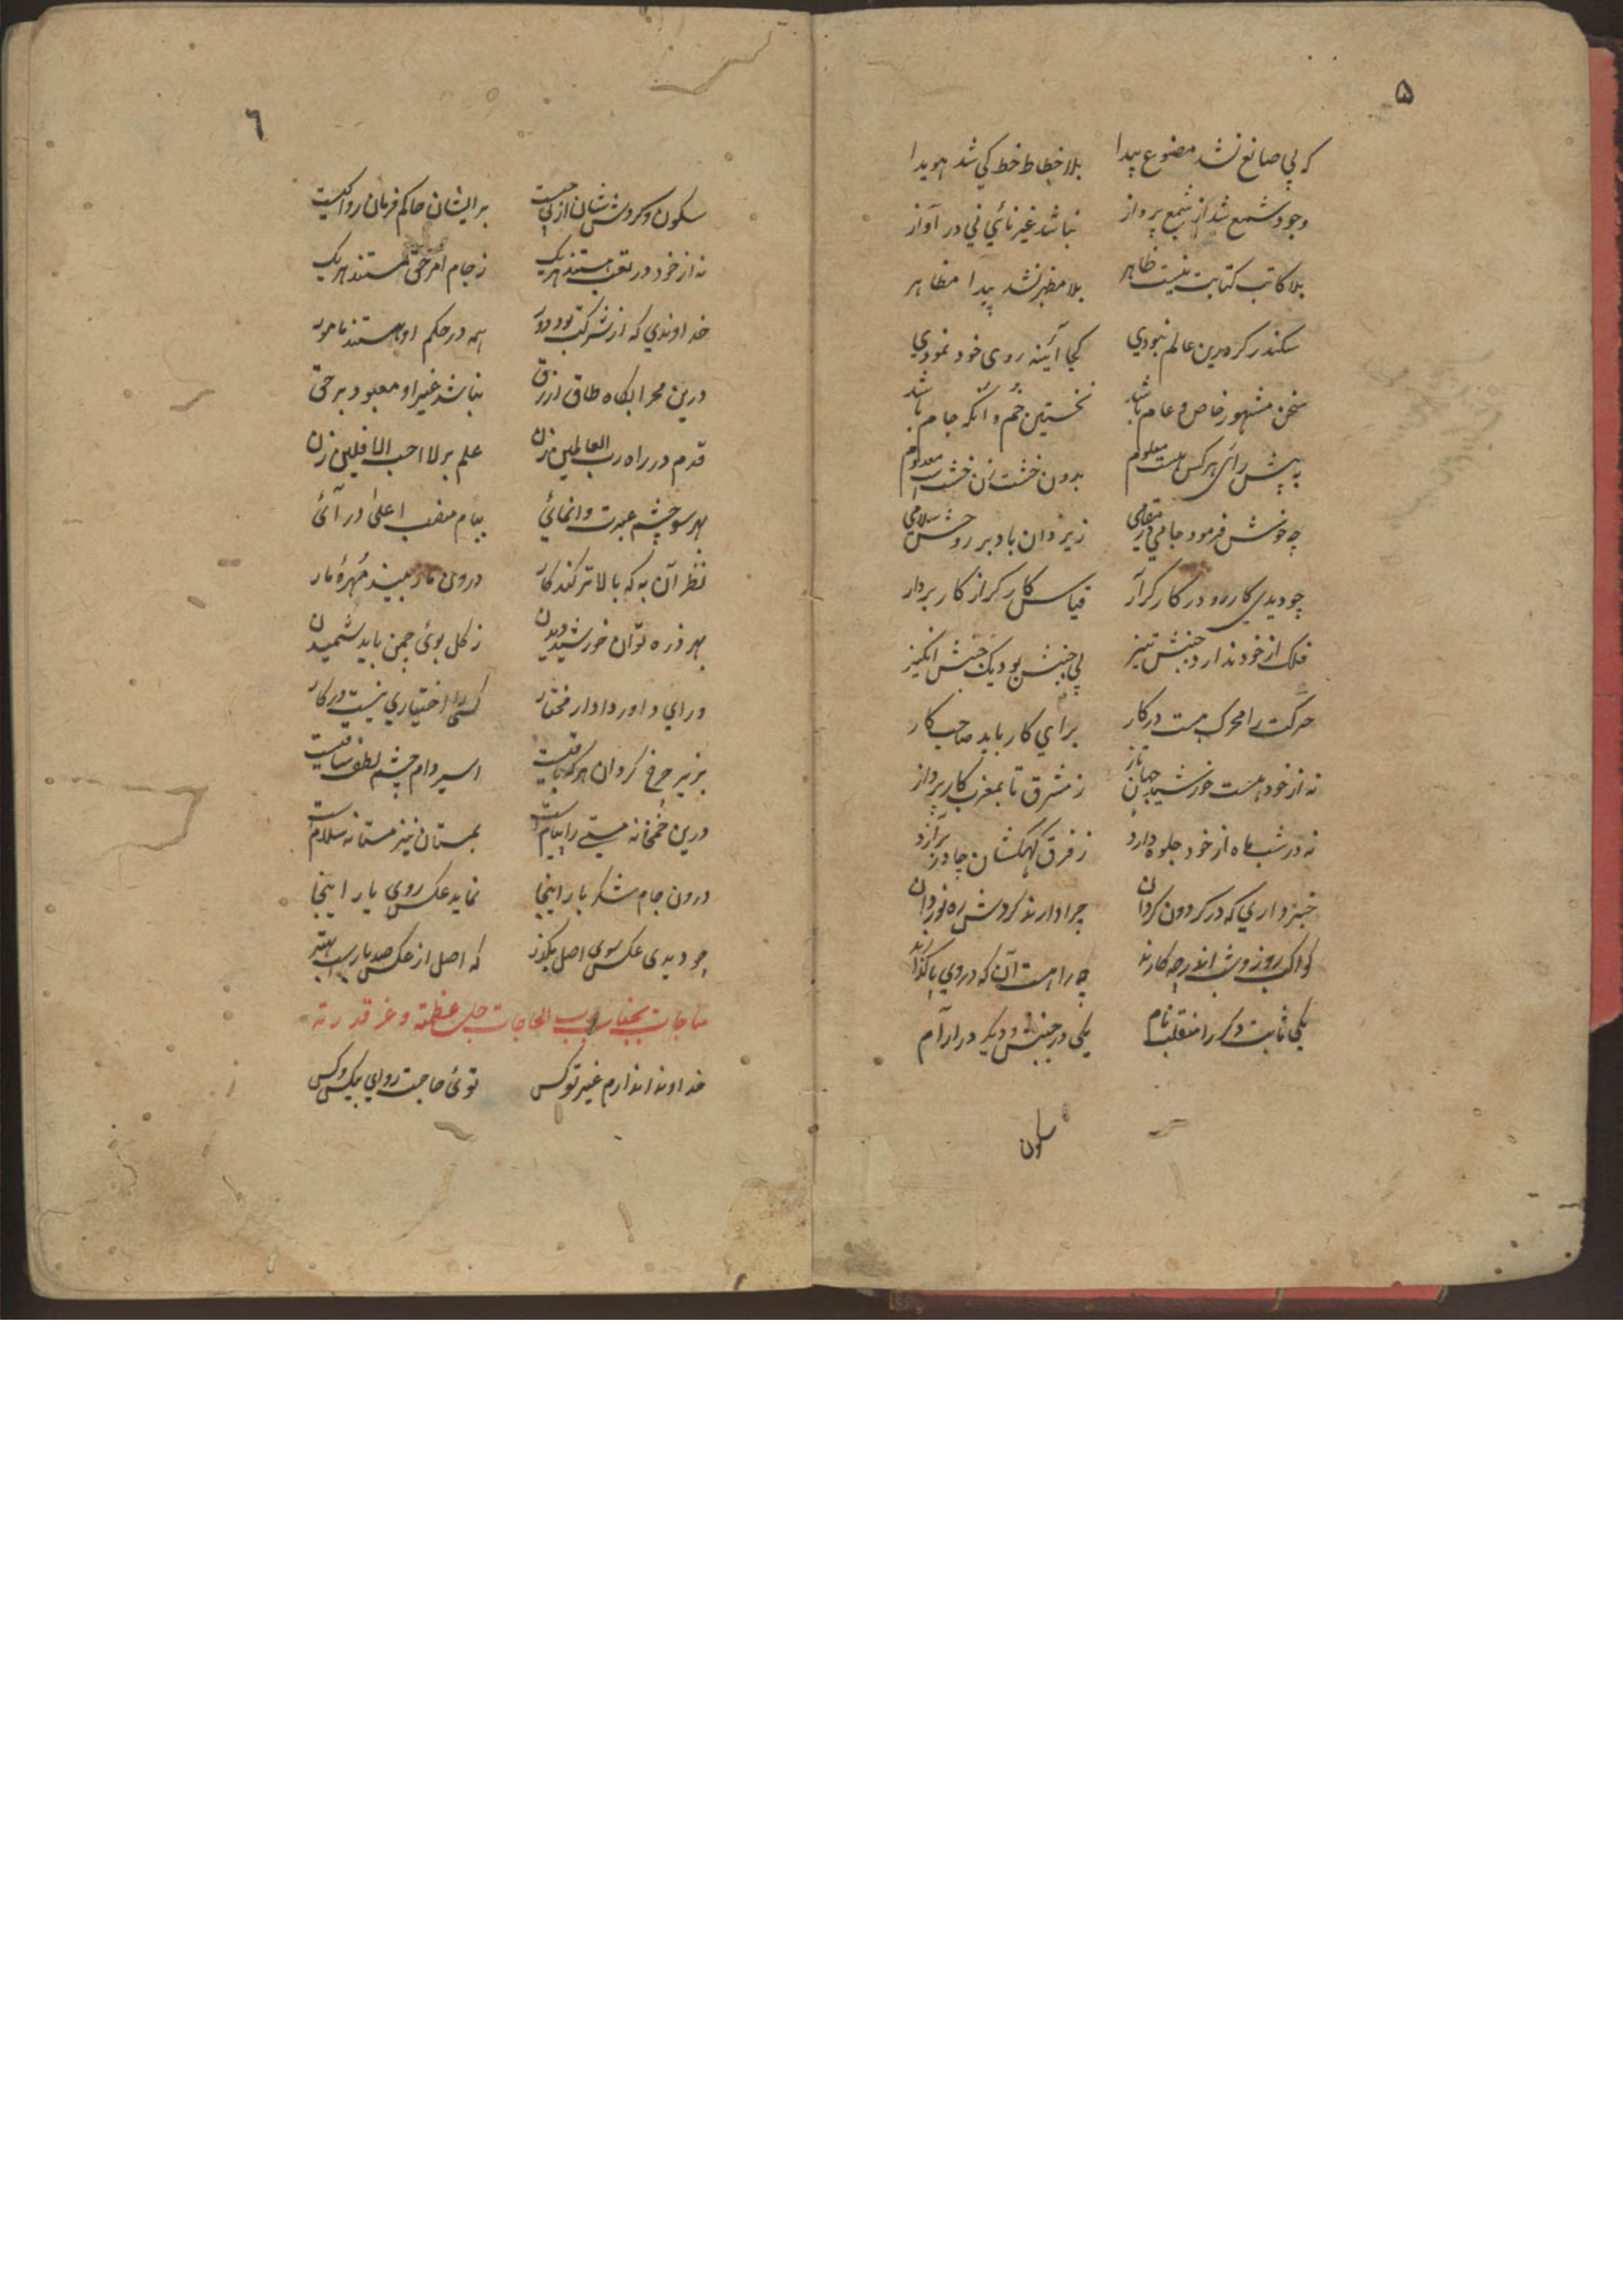 ۵
که بی صانع نشد مصنوع پیدا بلا خطاط خط کی شد هویدا
وجود شمع شد از شمع پرداز نباشد غیر نائی نی در آواز
بلا کاتب کتابت نیست ظاهر بلا مظهر نشد پیدا مظاهر
سکندر گر درین عالم نبودی کجا آئینه روی خود نمودی
سخن مشهور خاص و عام باشد نخستین خم وانگه جام باشد
به پیش رائ هر کس هست معلوم بدون خشت زن خشت است معدوم
چه خوش فرمود جامی در مقامی ز یزدان باد بر روحش سلامی
چو دیدی کار رو در کارگر آر قیاس کارگر از کار بردار
فلک از خود ندارد جنبش تیز بی جنبش بود یک جنبش انگیز
حرکت را محرک هست درکار برای کار باید صاحب کار
نه از خود هست خورشید جهان تاز ز مشرق تا بمغرب کار پرداز
نه در شب ماه از خود جلوه دارد ز فرق کهکشان چادر برآرد
خبر داری که در گردون گردان چرا دارند گردش ره نوردان
کواکب روز و شب اندر چه کارند چه راهست آن که در وی پا گذارند
یکی ثابت دگر را منقلب نام یکی در جنبش و دیگر در آرام
سکون
٦
سکون و گردش شان از پی چیست بر ایشان حاکم فرمان روا کیست
نه از خود در تعب هستند هر یک ز جام امر حق مستند هر یک
خداوندی که از شرکت بود دور همه در حکم او هستند مامور
درین محرابگاه طاق ازرق نباشد غیر او معبود بر حق
قدم در راه رب العالمین زن علم بر لا احب الافلین زن
بهر سو چشم عبرت وانمائی ببام منصب اعلی در آئی
نظر آن به که بالاتر کند کار درون مار بیند مهرۀ مار
بهر ذره توان خورشید دیدن ز گل بوئ چمن باید شمیدن
ورای داور دادار مختار کسی را اختیاری نیست درکار
بزیر چرخ گردان هر که باقیست اسیر دام چشم لطف ساقیست
درین خمخانه مستی را پیام است بمستان نیز مستانه سلام است
درون جام شکر بار اینجا نماید عکس روی یار اینجا
چو دیدی عکس سوی اصل بگذر که اصل از عکس صد بار است بهتر
مناجات بجناب رب الحاجات جل عظمته و عز قدرته
خداوندا ندارم غیر تو کس توئ حاجت روای بیکس و کس